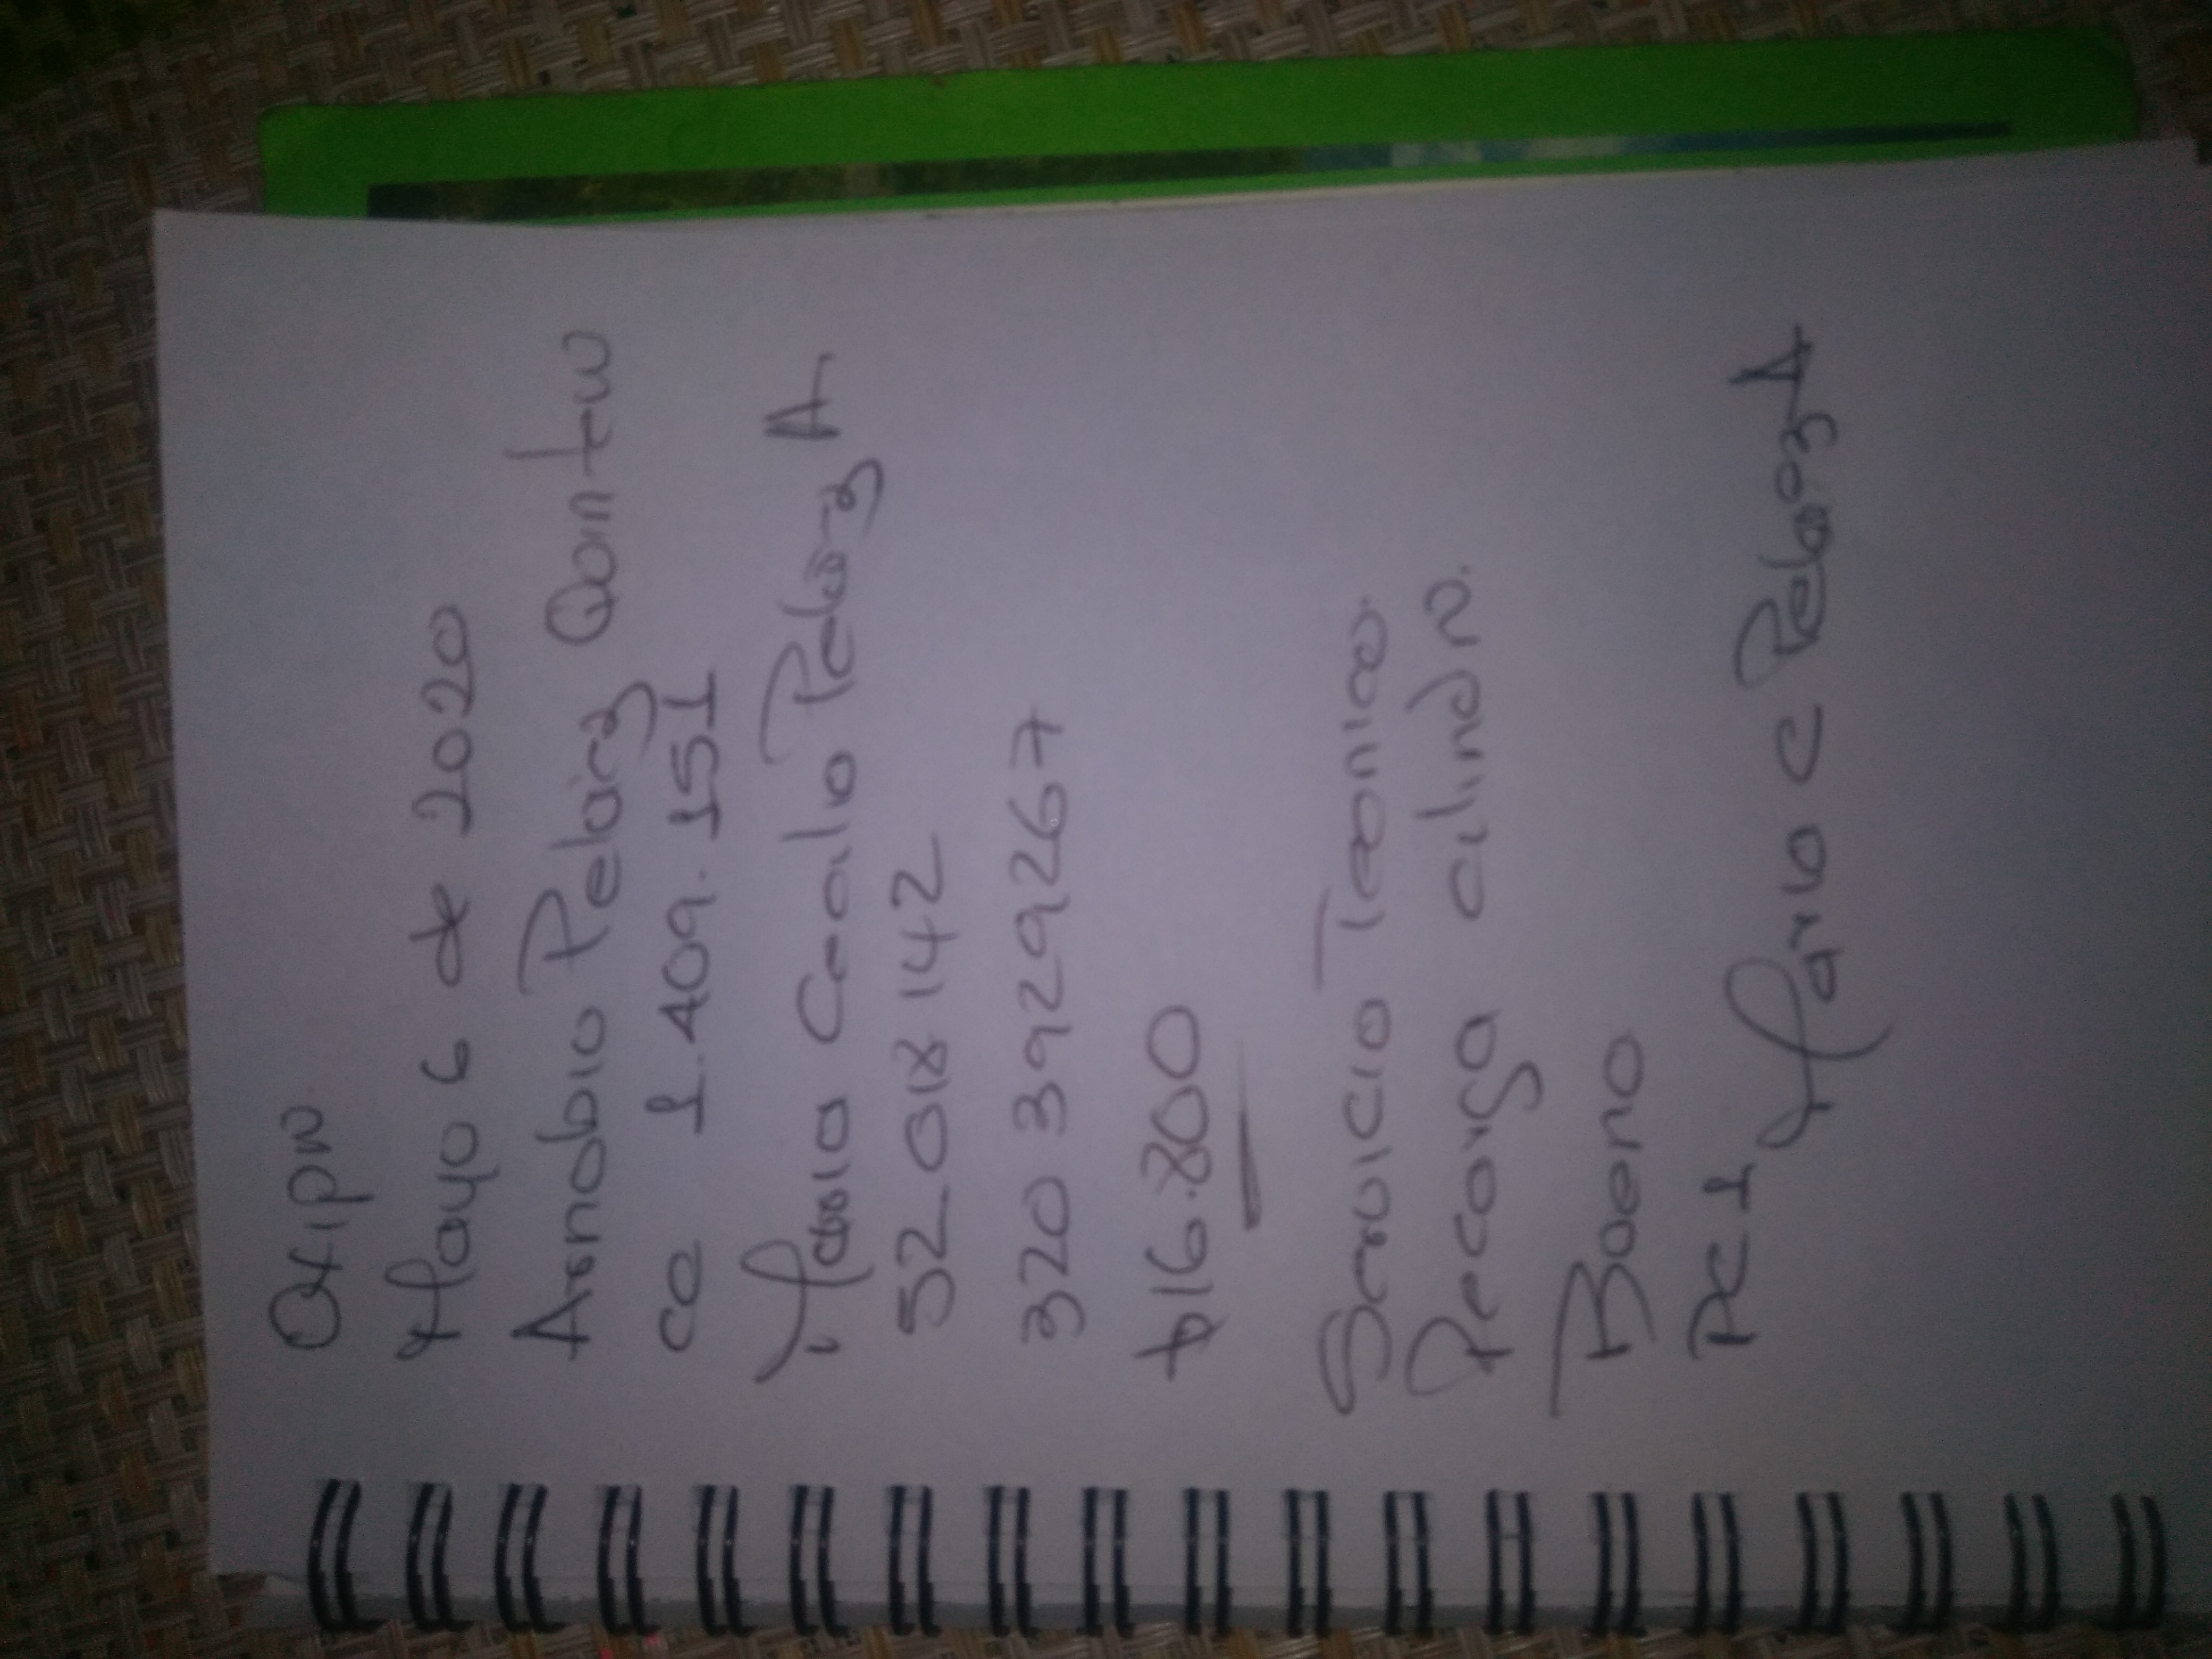 Oxipro
Mayo 6 de 2020
Arnobio Pelaez Quintero
cc 1.409.151
Maria Cecilia Pelaez A.
52.018142
320 3929267
$16.800
Servicio Tecnico.
Recarga cilindro.
Bueno
Maria C Pelaez A